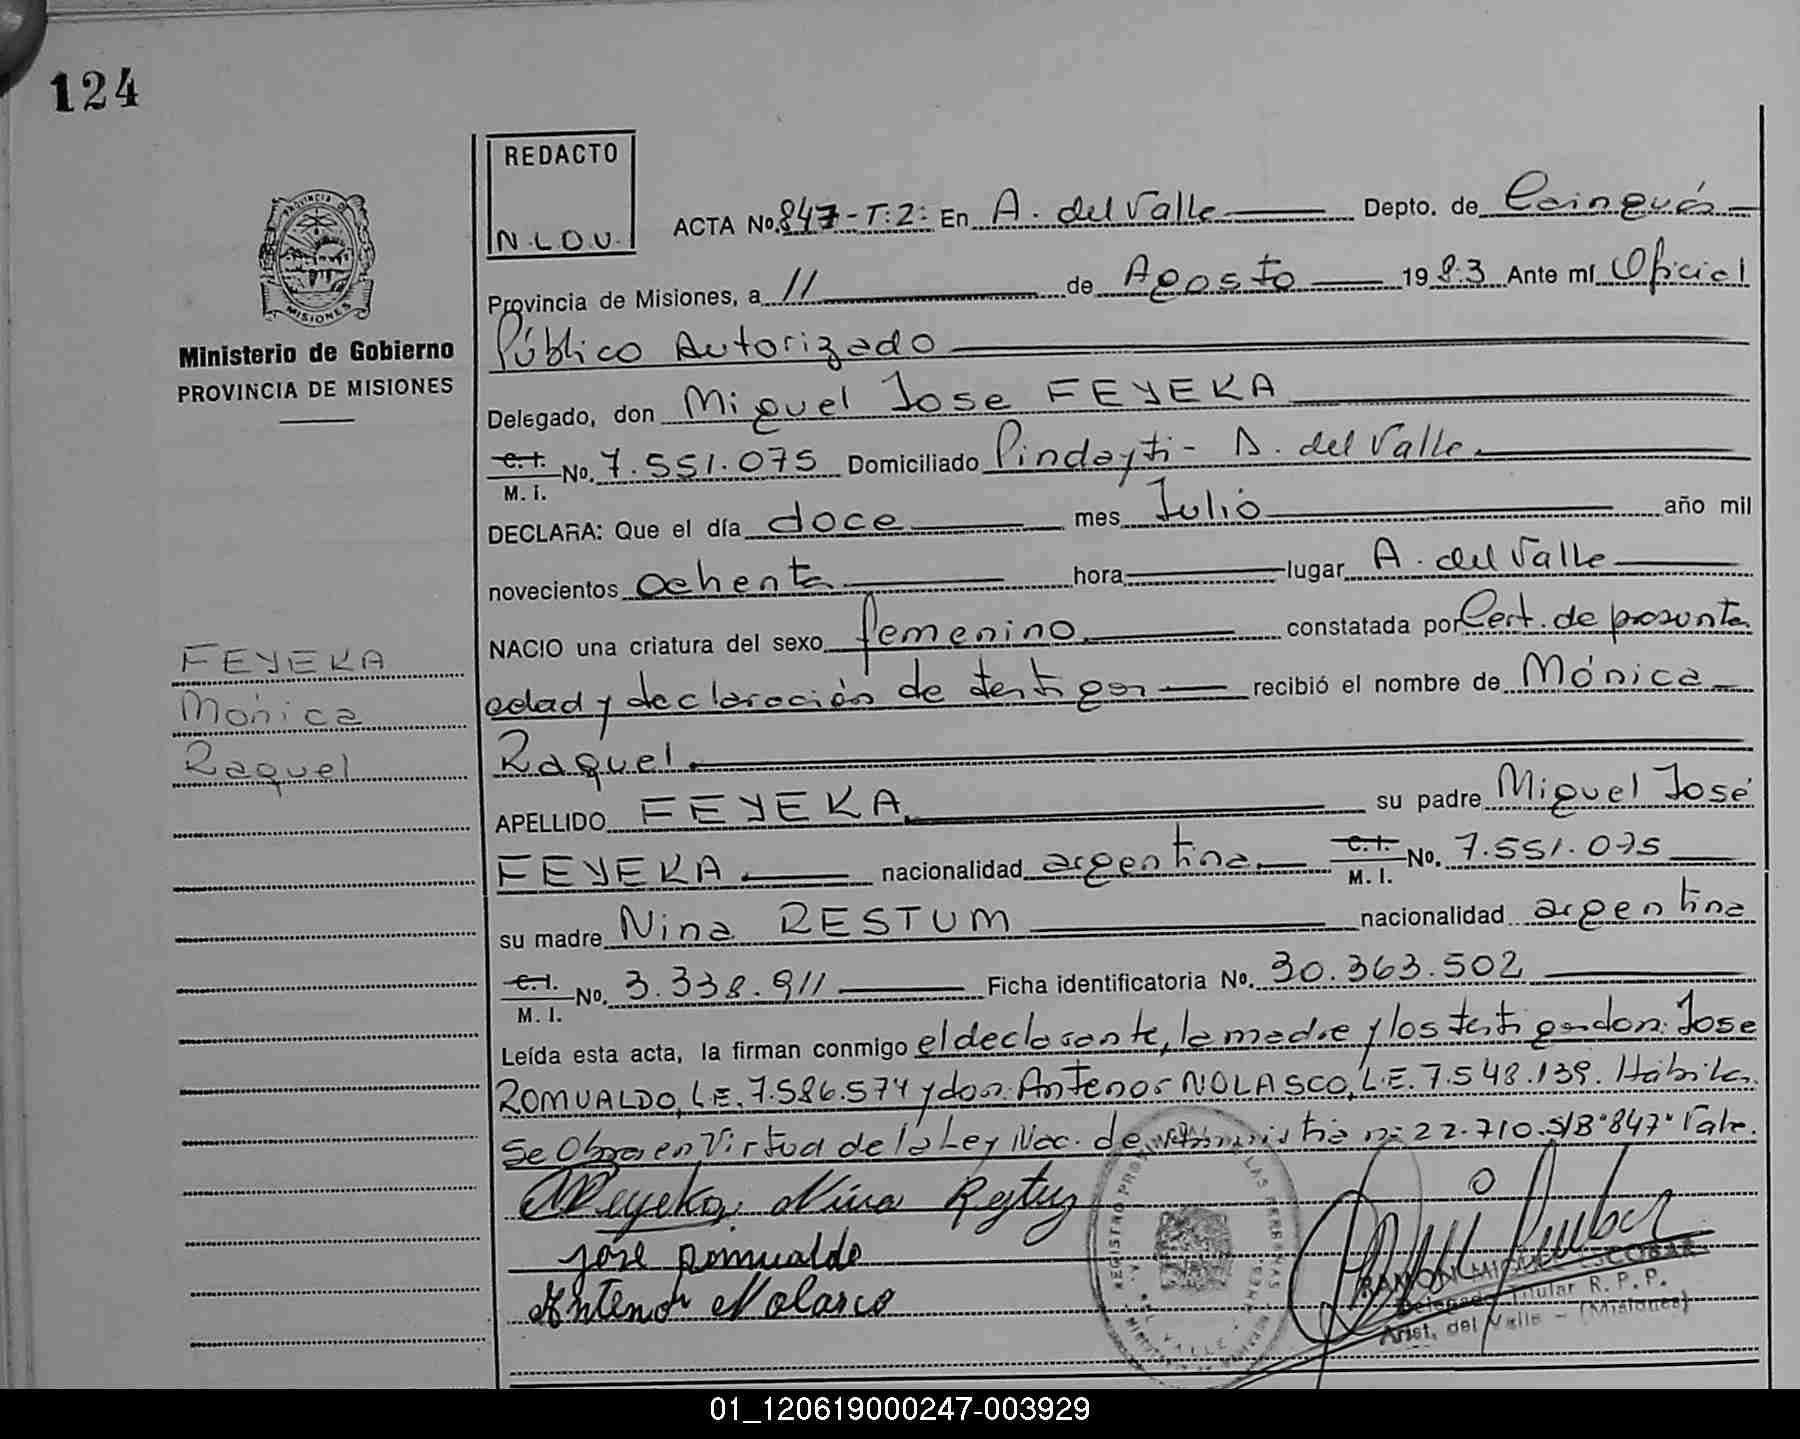 124
REDACTO
N.L.O.U.
PROVINCIA DE
MISIONES
Ministerio de Gobierno
PROVINCIA DE MISIONES
FEYEKA
Mónica
Raquel
ACTA No. 847-T:2: En A. del Valle Depto. de Cainguás
Provincia de Misiones, a 11 de Agosto 1983 Ante mí Oficial
Público Autorizado
Delegado, don Miguel Jose FEYEKA
C.I. M.I. No. 7.551.075 Domiciliado Pindayti - A. del Valle
DECLARA: Que el día doce mes Julio año mil
novecientos ochenta hora lugar A. del Valle
NACIO una criatura del sexo femenino constatada por Cert. de presunta
edad y declaración de testigos recibió el nombre de Mónica
Raquel.
APELLIDO FEYEKA su padre Miguel José
FEYEKA nacionalidad argentina C.I. M.I. No. 7.551.075
su madre Nina RESTUM nacionalidad argentina
C.I. M.I. No. 3.338.911 Ficha identificatoria No. 30.363.502
Leída esta acta, la firman conmigo el declarante, la madre y los testigos don: Jose
ROMUALDO, L.E. 7.586.574 y don: Antenor NOLASCO, L.E. 7.548.139. Hábiles.
Se Obra en Virtud de la Ley Nac. de Amnistia nº 22.710. S/B "847" Vale.
MFeyeka Nina
Jose Romualdo
Antenor Nolasco
RAMON MIGUEL ESCOBAR
Delegado Titular R. P. P.
Arist. del Valle - (Misiones)
01_120619000247-003929